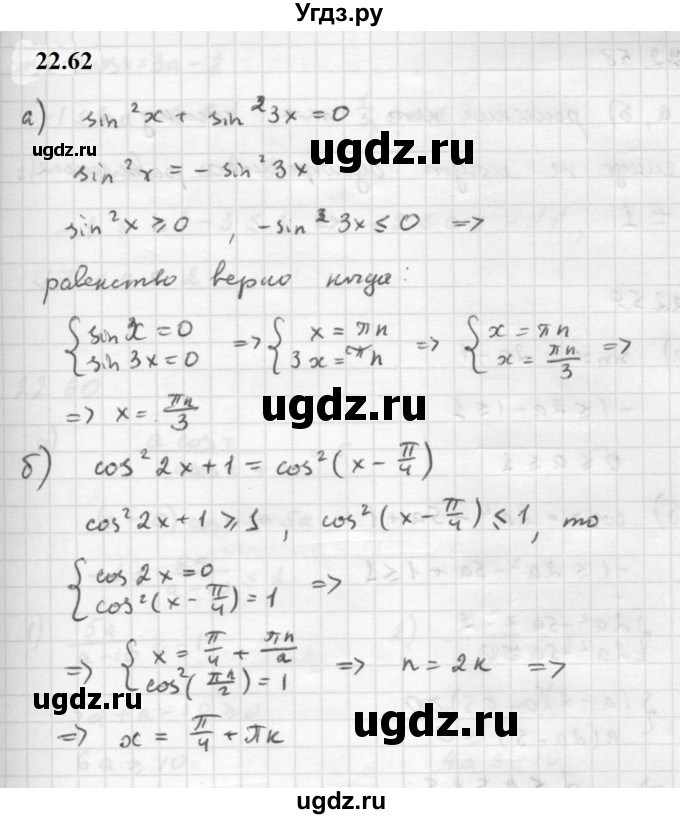 ugdz.ru
22.62
а) sin²x + sin²3x = 0
ugdz.ru ugdz.ru
sin²x = - sin²3x
sin²x ⩾ 0 , -sin²3x ⩽ 0 =>
равенство верно когда:
{ sin x = 0 ; sin 3x = 0 => { x = πn ; 3x = πn => { x = πn ; x = πn/3 =>
ugdz.ru
=> x = πn/3
б) cos² 2x + 1 = cos² (x - π/4)
cos² 2x + 1 ⩾ 1 , cos² (x - π/4) ⩽ 1 , то
ugdz.ru ugdz.ru
{ cos 2x = 0 ; cos² (x - π/4) = 1 =>
=> { x = π/4 + πn/2 ; cos² (πn/2) = 1 => n = 2k =>
=> x = π/4 + πk
ugdz.ru
ugdz.ru